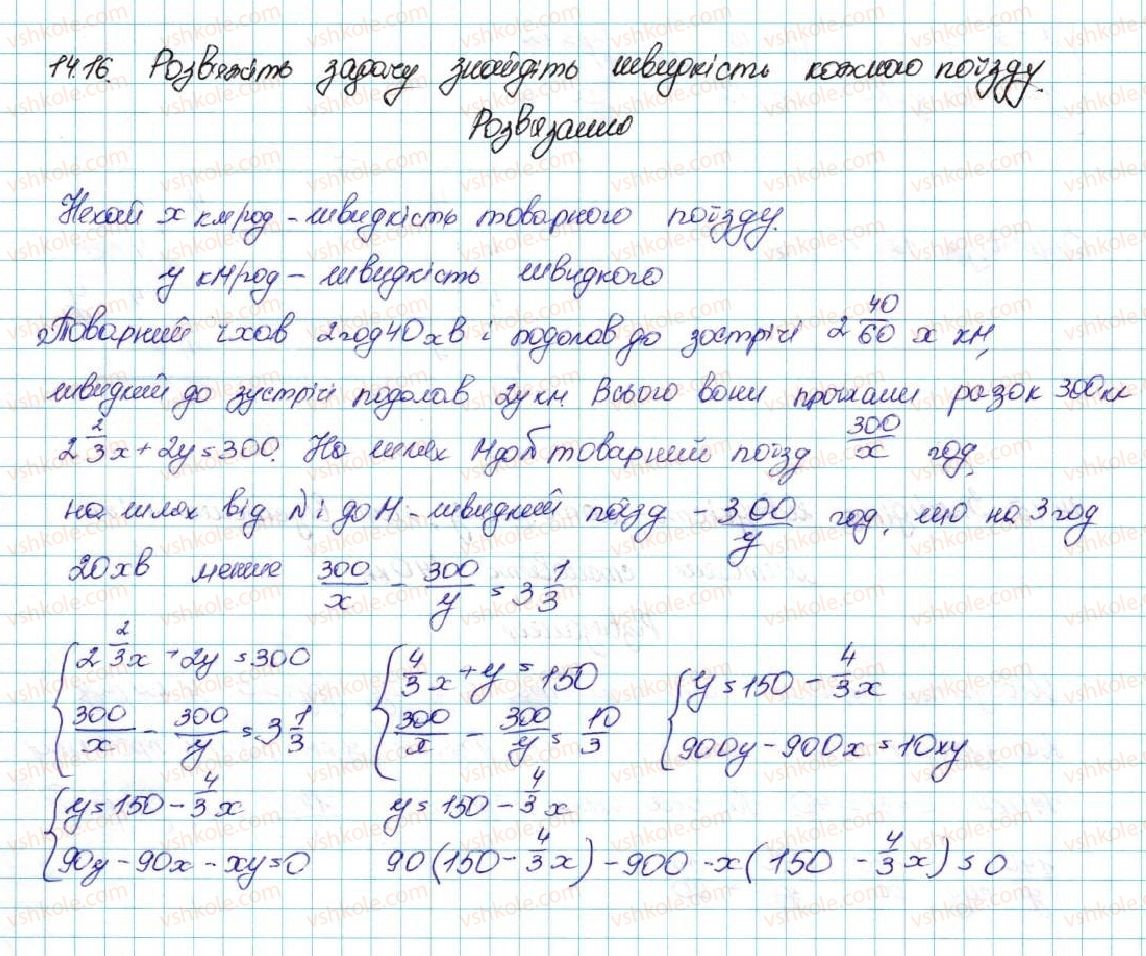 14.16. Розв'яжіть задачу знайдіть швидкість кожного поїзду.
Розв'язання
Нехай x км/год - швидкість товарного поїзду.
y км/год - швидкість швидкого
Товарний їхав 2год40хв і подолав до зострічі 2 40/60 x км,
швидкий до зустрічі подолав 2y км. Всього вони проїхали разок 300км
2 2/3 x + 2y = 300. На шлях М до N товарний поїзд 300/x год,
на шлях від N і до М - швидкий поїзд - 300/y год, що на 3год
20хв менше 300/x - 300/y = 3 1/3
{ 2 2/3 x + 2y = 300 { 4/3 x + y = 150 { y = 150 - 4/3 x
300/x - 300/y = 3 1/3 300/x - 300/y = 10/3 900y - 900x = 10xy
{ y = 150 - 4/3 x y = 150 - 4/3 x
90y - 90x - xy = 0 90(150 - 4/3 x) - 900 - x(150 - 4/3 x) = 0
vshkole.com